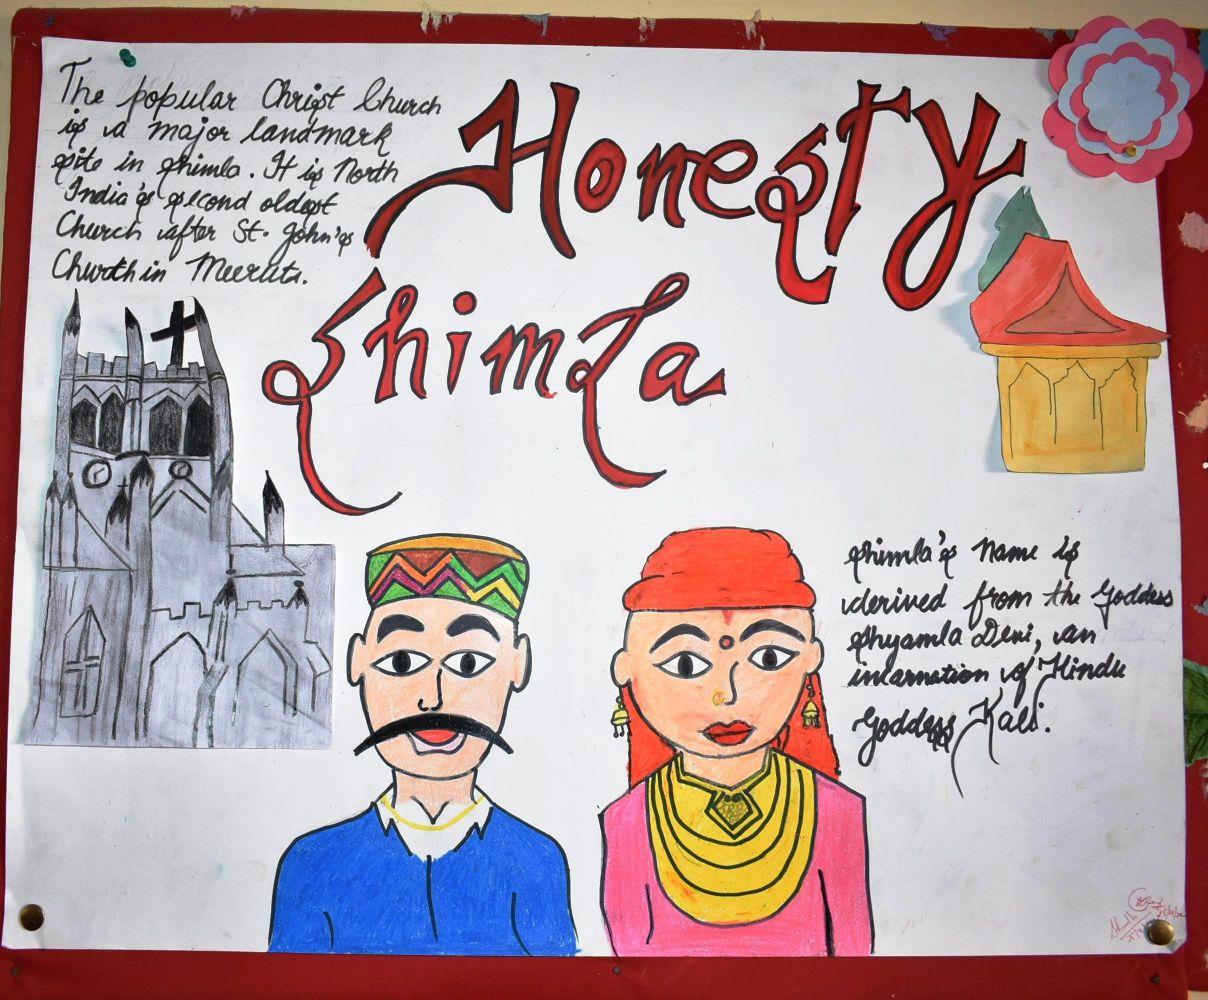 The popular Christ Church
is a major landmark
site in Shimla. It is North
India's second oldest
Church after St. John's
Church in Meerut.
Honesty
Shimla
Shimla's Name is
derived from the Goddess
Shyamla Devi, an
incarnation of Hindu
Goddess Kali.